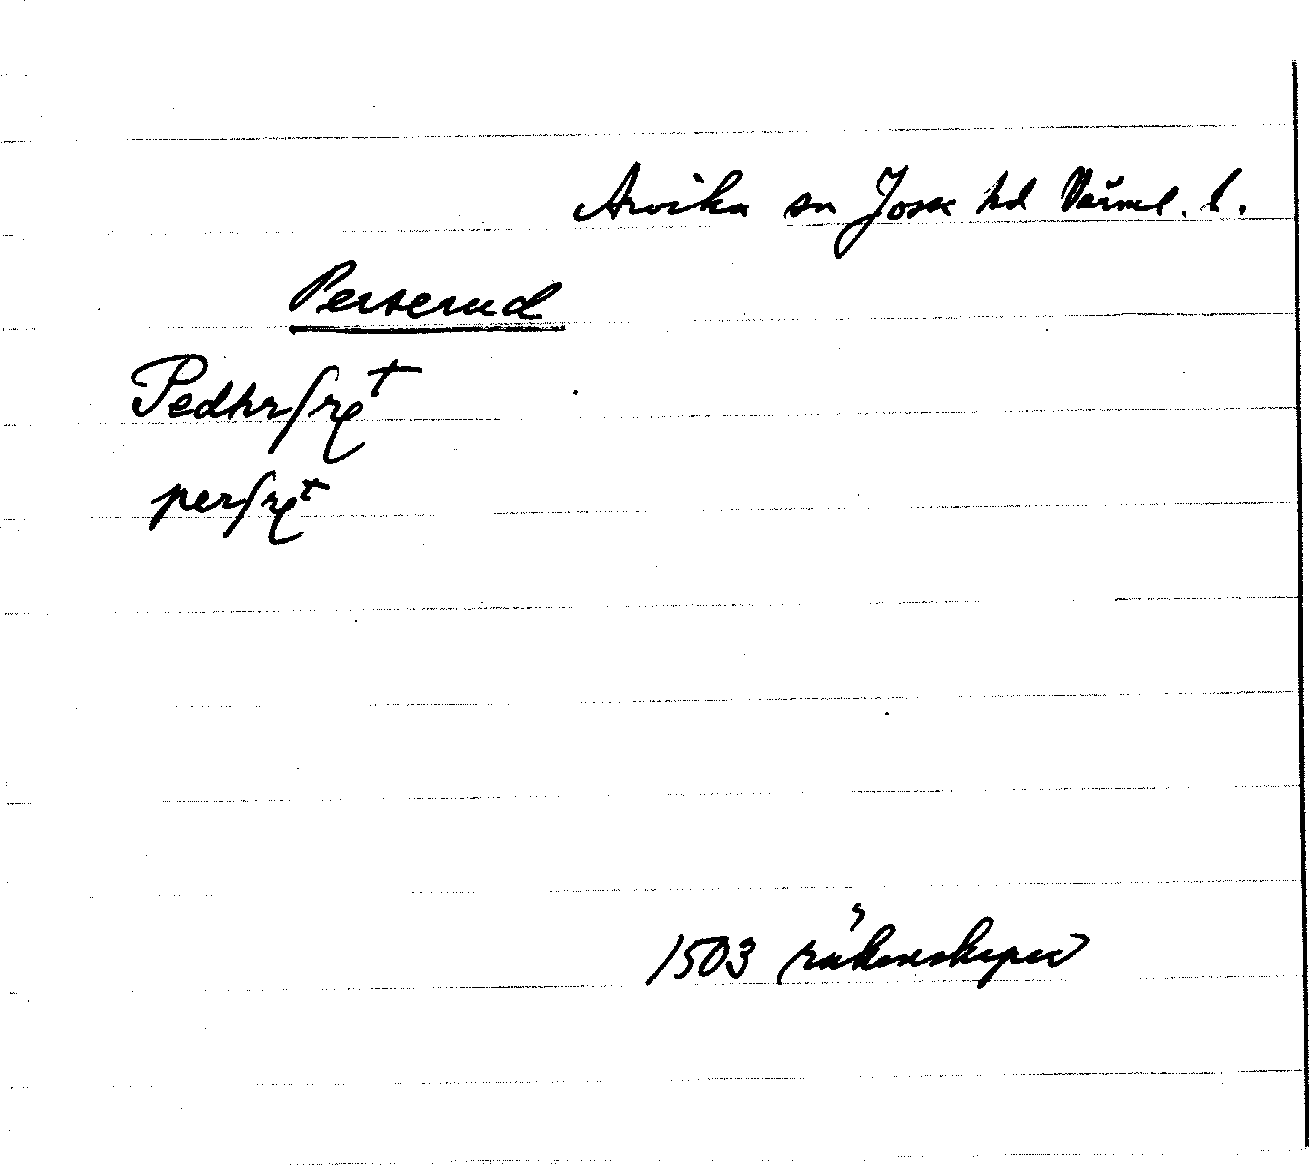 Arvika sn Jösse hd Värml. l.
Perserud
Pedhrſrꝭt
perſrꝭt
1503 räkenskaper